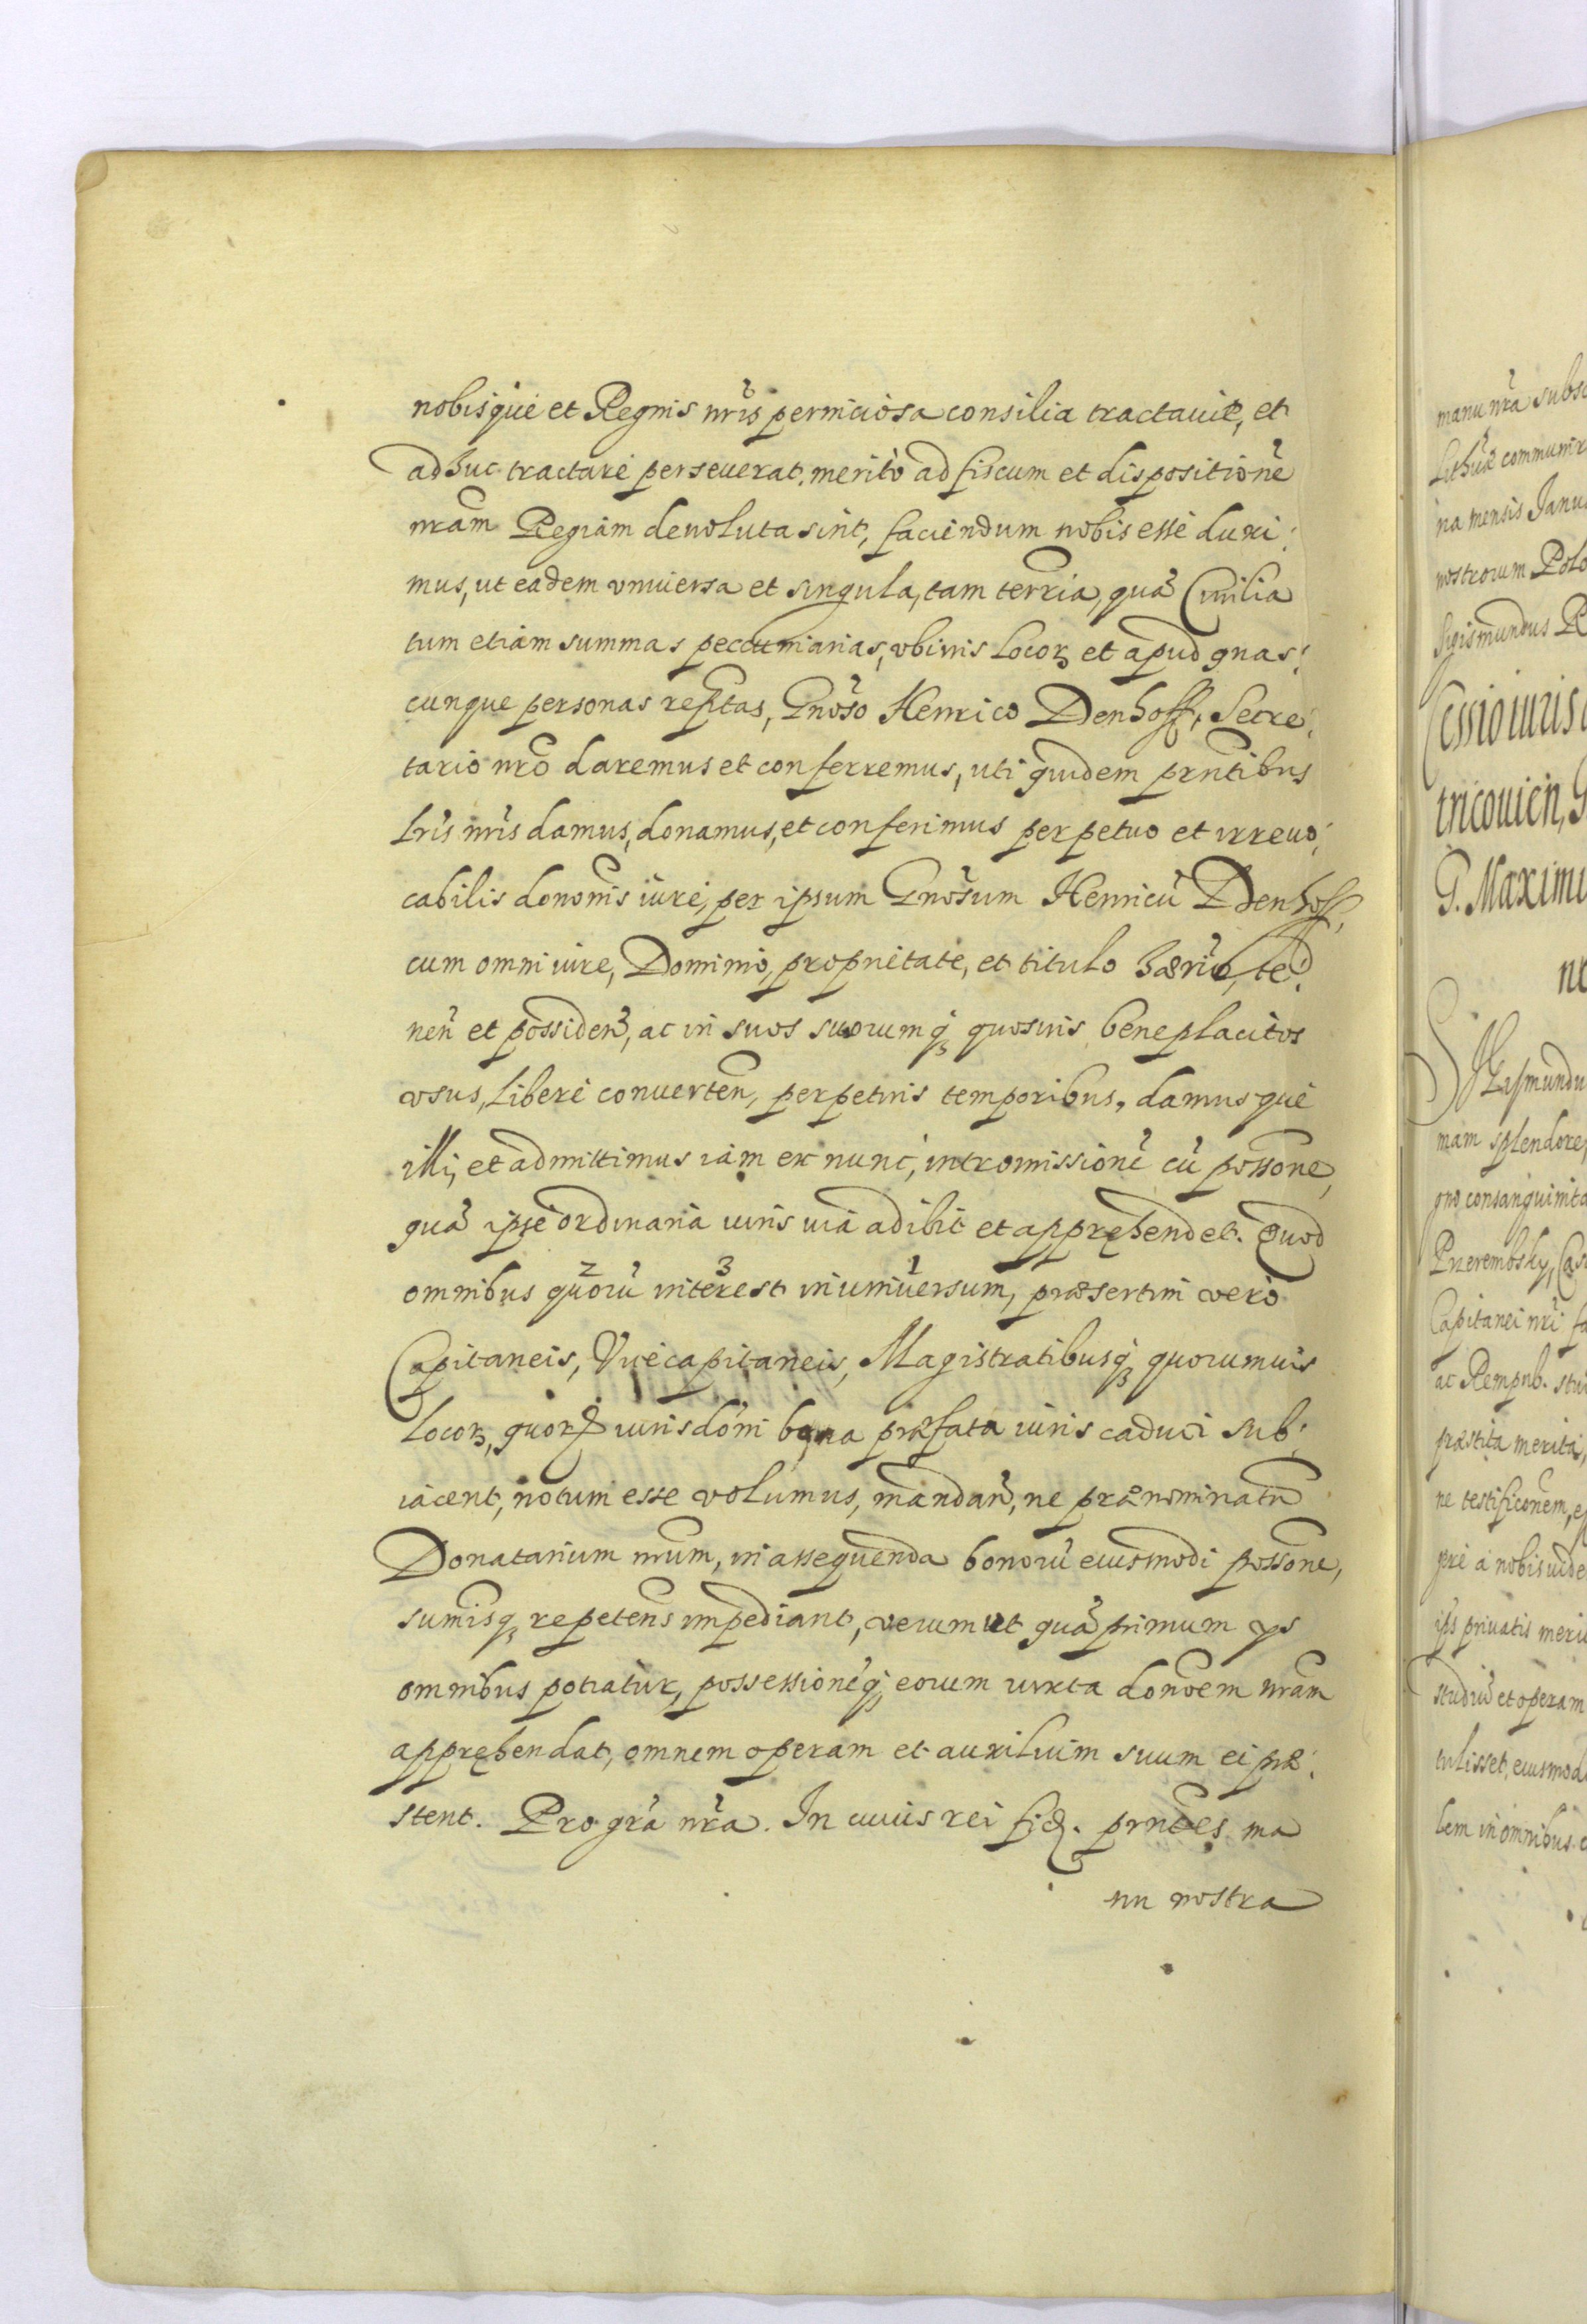 nobisque et Regnis nr̃is perniciosa consilia tractauit, et
adhuc tractare perseuerat, merito ad fiscum et dispositionẽ
nr̃am Regiam deuoluta sint, faciendum nobis esse duxi:
mus, ut eadem vniuersa et singula, tam terr̃ia, quã Ciuilia
tum etiam summas pecuniarias, vbiuis locoꝝ et apud quas:
cunque personas rep̃tas, Gnõso Henrico Denhoff, Secre:
tario nr̃o daremus et conferremus, uti quidem prñtibus
Lr̃is nr̃is damus, donamus, et conferimus perpetuo et irreuo:
cabilis donõnis iure, per ipsum Gnõsum Henricũ Denhoff,
cum omni iure, Dominio, proprietate, et titulo hãen̄, te:
nen̄ et possiden̄, ac in suos suorumq̨ quosuis beneplacitos
vsus, libere conuerten̄, perpetuis temporibus, damusque
illi, et admittimus iam ex nunc, intromissionẽ cũ possõne,
quã ipse ordinaria iuris uia adibit et apprehendet. Quod
omnibus quorũ interest in uniuersum, præsertim vero
2 3 1
Capitaneis, Vicecapitaneis, Magistratibusq̨ quorumuis
locoꝝ, quoꝝ iurisdõni bona præfata iuris caduci sub:
iacent, notum esse volumus, mandan̄, ne prænominatũ
Donatarium nr̃um, in assequenda bonorũ eiusmodi possõne,
sum̃isq̨ repetens impediant, verum ut quã primum ys
omnibus potiatur, possessionẽq̨ eorum iuxta donõem nr̃am
apprehendat, omnem operam et auxilium suum ei præ:
stent. Pro gr̃a nr̃a. In cuius rei fid. prñtes ma
nu nostra
manu nr̃a subsc
na mensis Janu
nostrorum Polo
Sigismundus
Cessio iuris
tricouien,
G. Maximi
mam splendore,
gno consanguinita
Capitanei nr̃i fa
ac Rempub. stu
præstita merita,
ne testificõnem, e
studiũ et operam
tulisset, eiusmodi
lem in omnibus